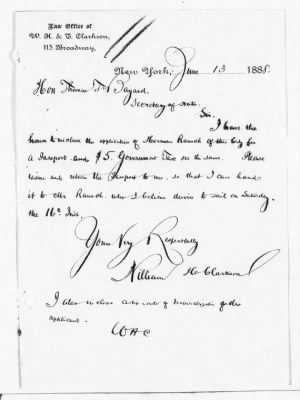 Law Office of
W. H. & T. Clarkson,
115 Broadway,
New York, June 13 1888.
Hon Thomas F Bayard,
Secretary of State.
Sir.
I have the
honor to inclose the application of Herman Rausch of this City for
a Passport and $5. Government Tax on the same. Please
issue and return the Passport to me, so that I can hand
it to Mr Rausch who I believe desires to sail on Saturday
the 16th Inst.
Yours Very Respectfully
William H. Clarkson
I also inclose certificate of Naturalization of the
applicant.
WHC